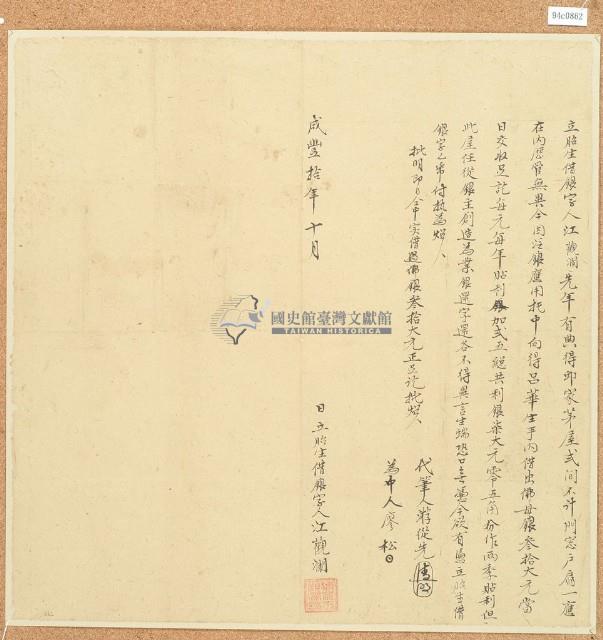 94c0862
立貽生借銀字人江觀瀾先年有典得邱家茅屋弍間不計門窓戶扇一應
在內歷管無異今因乏銀應用托中向得呂華生手內借出佛母銀叁拾大元當
日交收足訖每元每年貼利銀加弍五超共利銀柒大元零五角分作兩季貼利但
此屋任從銀主創造為業銀還字還各不得異言生端恐口無憑今欲有憑立貽生借
銀字乙紙付執為炤
批明即日仝中实借過佛銀叁拾大元正足訖批炤
代筆人游從先
為中人廖松
咸豐拾年十月
日立貽生借銀字人江觀瀾
國史館臺灣文獻館
TAIWAN HISTORICA